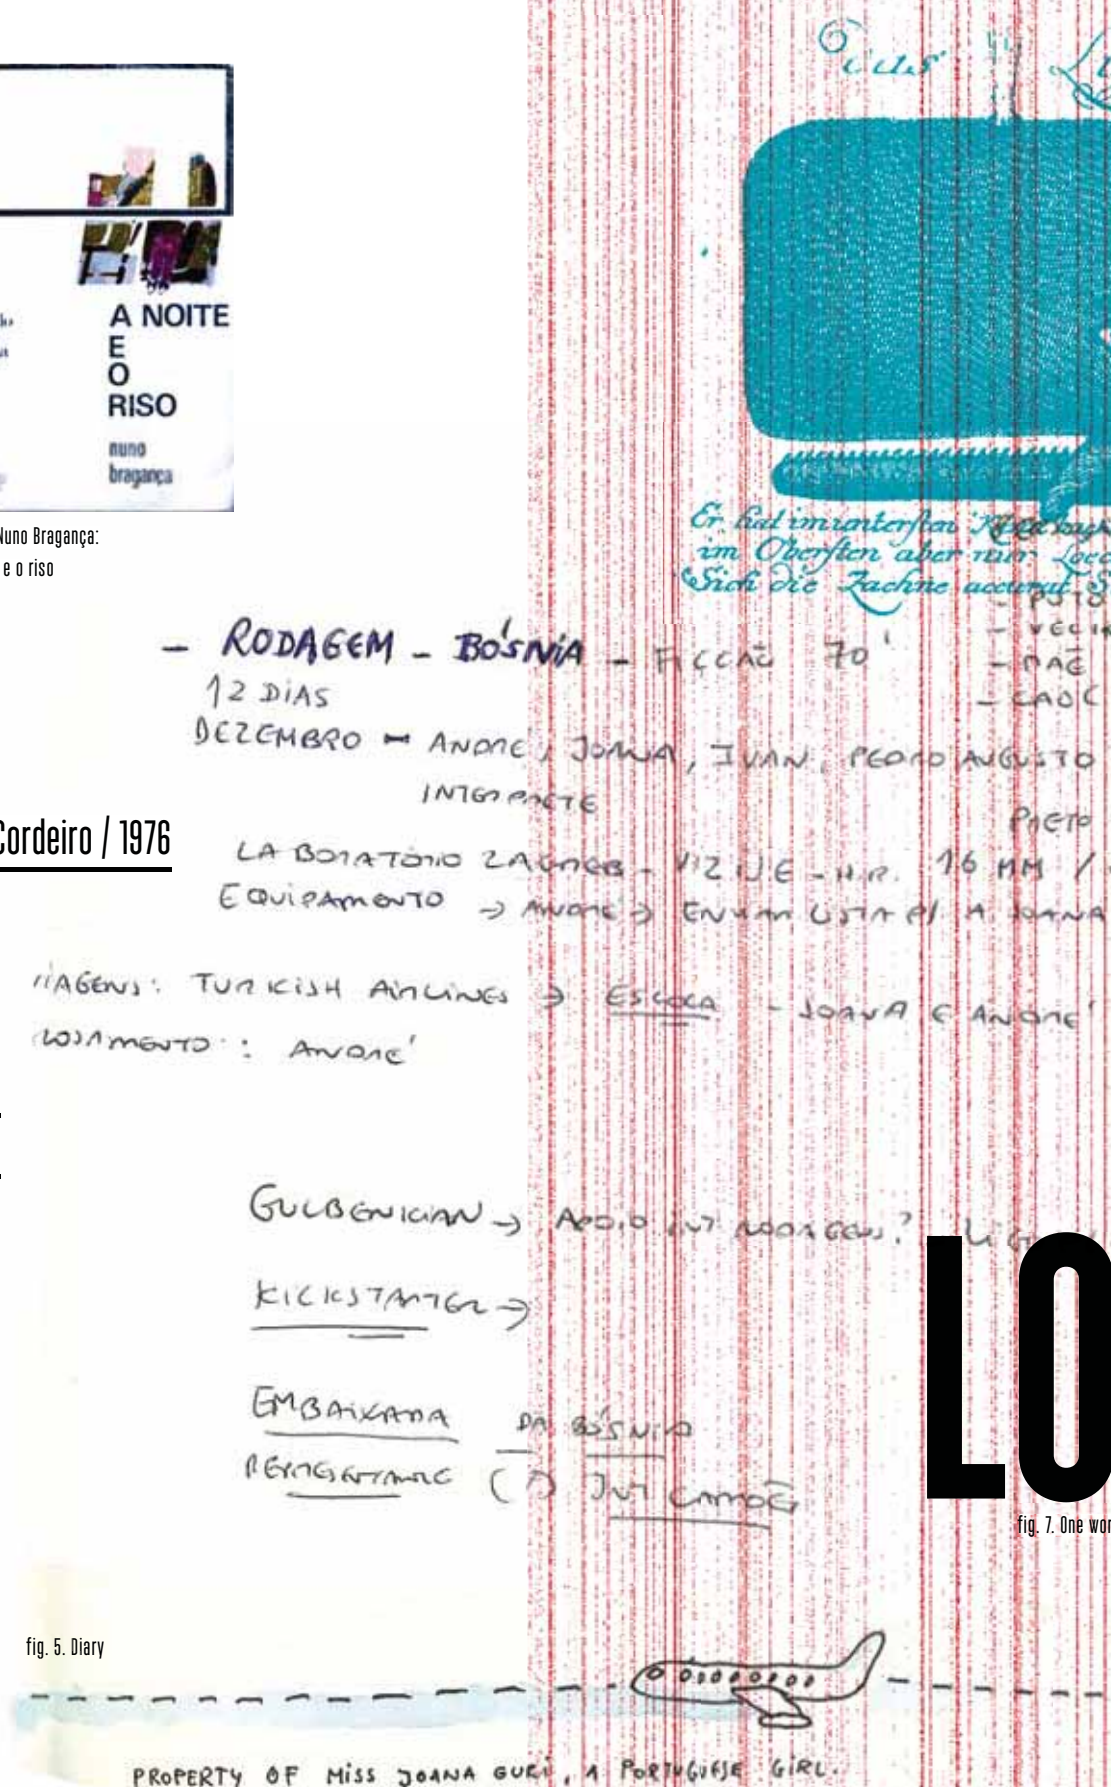 A NOITE
E
O
RISO
nuno
bragança
Nuno Bragança:
e o riso
Er hat im untersten
im Obersten aber nur
Sich die Zaehne accurat
- RODAGEM - BÓSNIA - FICÇÃO 70'
12 DIAS
DEZEMBRO - ANDRÉ, JOANA, IVAN, PEDRO AUGUSTO
INTERPRETE
- MÃE
PRETO
Cordeiro / 1976
LABORATÓRIO ZAGREB - 16 MM /
EQUIPAMENTO → ANDRÉ → ENVIAR LISTA P/ A JOANA
VIAGENS: TURKISH AIRLINES → ESCOLA - JOANA E ANDRÉ
ALOJAMENTO: ANDRÉ
GULBENKIAN → APOIO INT RODAGENS?
KICKSTARTER →
LO
EMBAIXADA DA BÓSNIA
REPRESENTANTE (?) INT CAMÕES
fig. 7. One wor
fig. 5. Diary
PROPERTY OF MISS JOANA GURI, A PORTUGUESE GIRL.